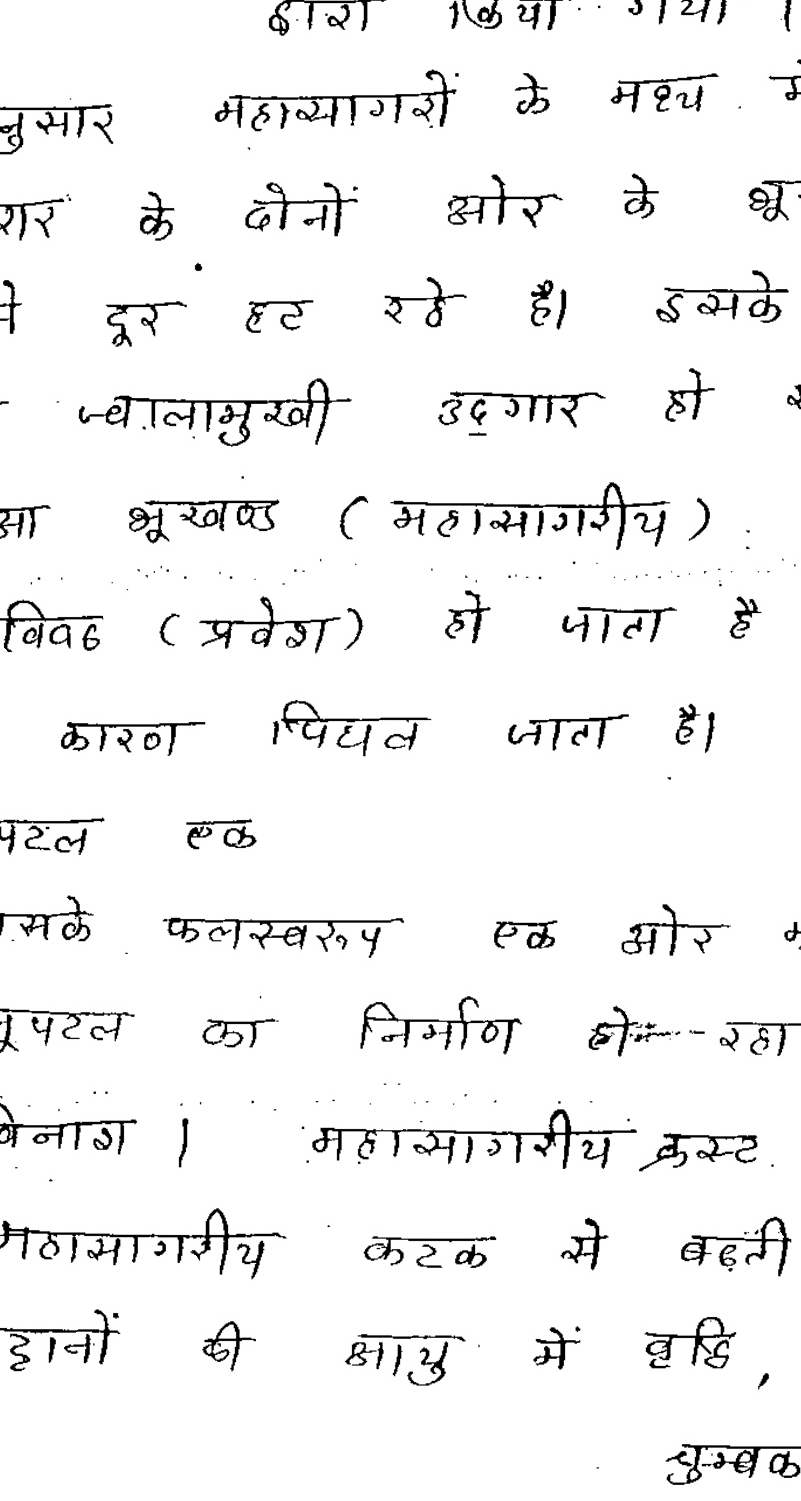 द्वारा किया गया ।
नुसार महासागरों के मध्य में
के दोनों ओर के भू
से दूर हट रहे है। इसके
ज्वालामुखी उद्गार हो
भूखण्ड (महासागरीय)
(प्रवेश) हो जाता है
कारण पिघल जाता है।
पटल एक
सके फलस्वरूप एक ओर
भूपटल का निर्माण हो रहा
विनाश । महासागरीय क्रस्ट
महासागरीय कटक से बढ़ती
ट्टानों की आयु में वृद्धि,
चुम्बक